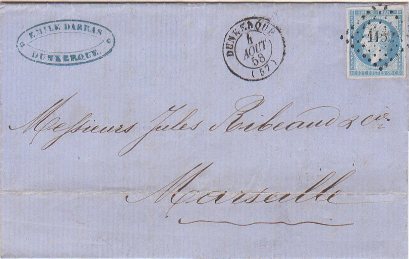 EMILE DARRAS
DUNKERQUE
DUNKERQUE
4
AOUT
58
(57)
Messieurs Jules Ribeaud & Cie
Marseille